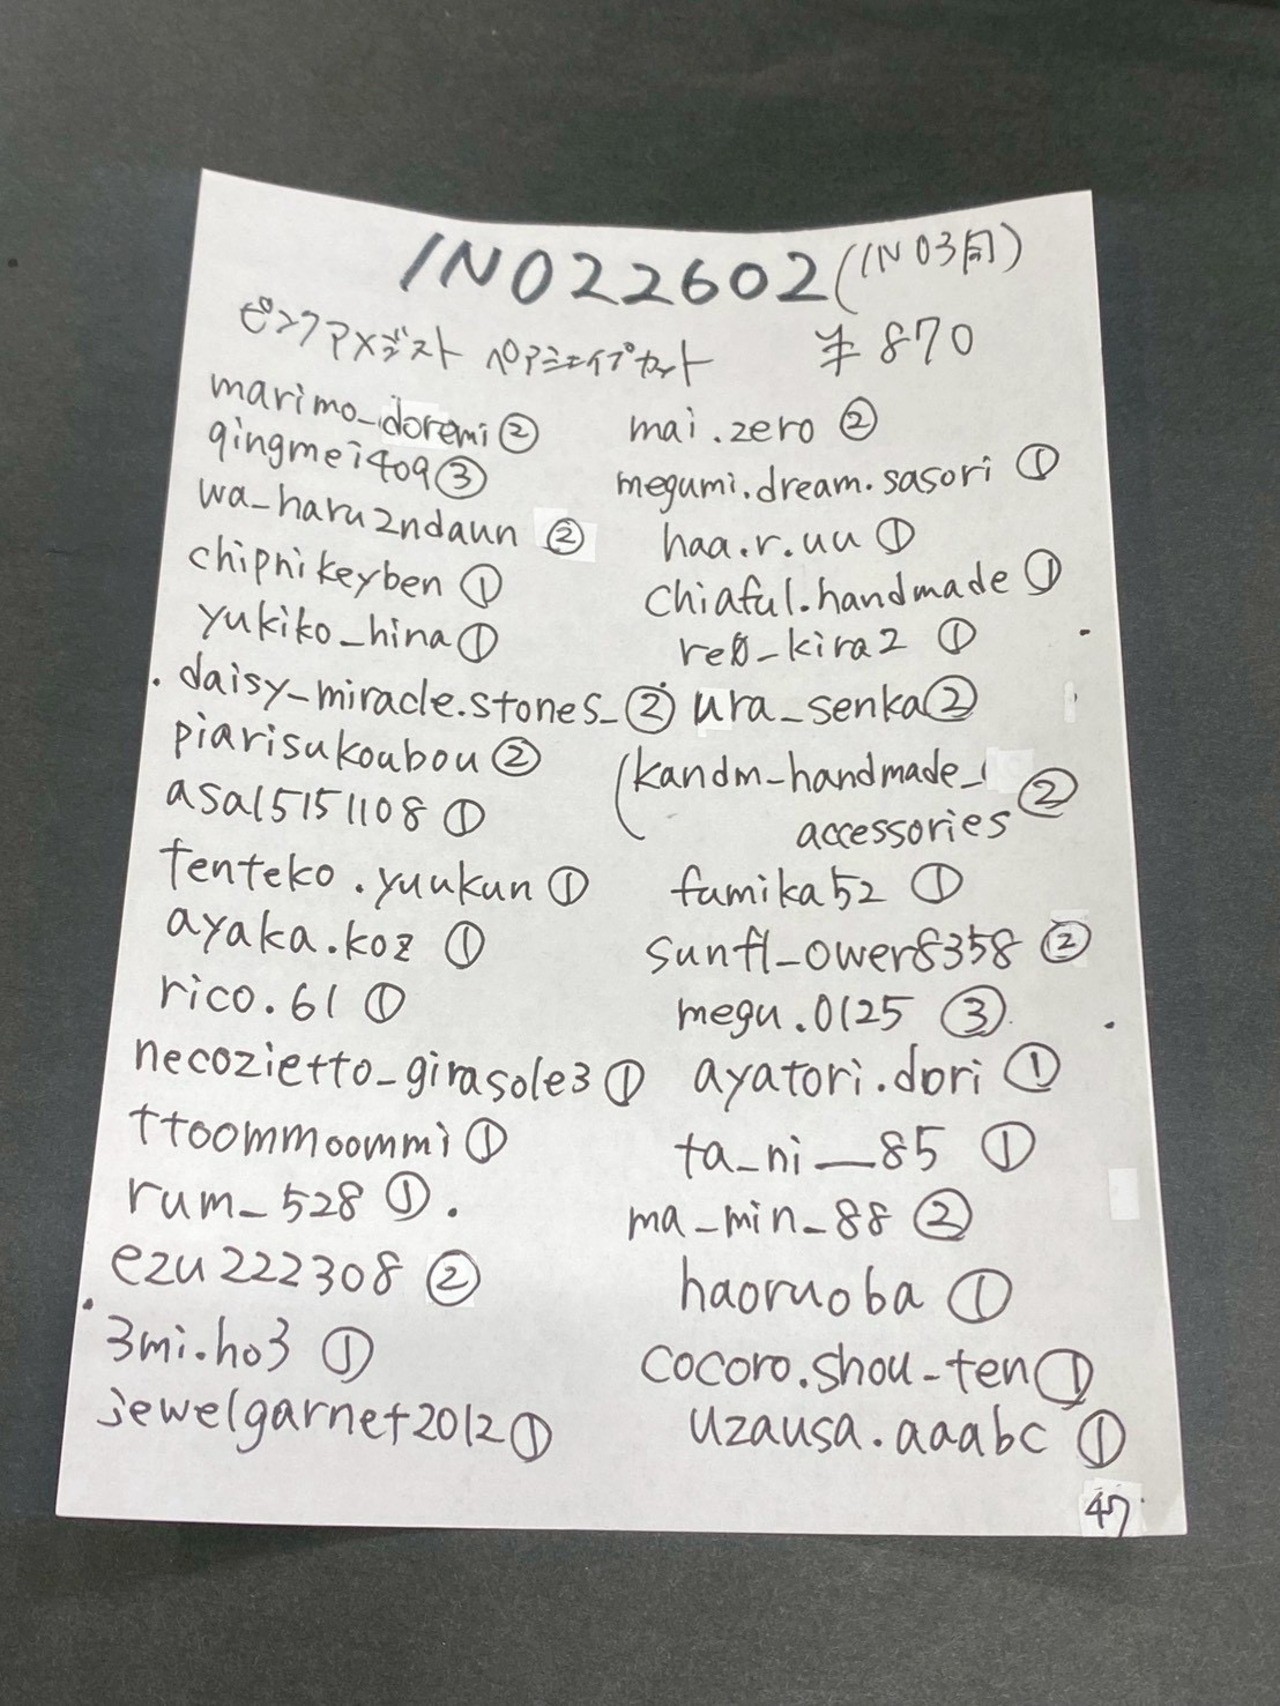 IN022602 (IN03同)
ピンクアメジスト ペアシェイプカット ¥870
marimo_doremi ②
qingmei409 ③
wa_haru2ndaun ②
chipnikeyben ①
yukiko_hina ①
daisy_miracle.stones_ ②
piarisukoubou ②
asa15151108 ①
tenteko.yuukun ①
ayaka.koz ①
rico.61 ①
necozietto_girasole3 ①
ttoommoommi ①
rum_528 ①
ezu222308 ②
3mi.ho3 ①
jewelgarnet2012 ①
mai.zero ②
megumi.dream.sasori ①
haa.r.uu ①
chiaful.handmade ①
re0_kira2 ①
ura_senka ②
(kandm_handmade_
accessories ②
fumika52 ①
sunfl_ower8358 ②
megu.0125 ③
ayatori.dori ①
ta_ni__85 ①
ma_min_88 ②
haoruoba ①
cocoro.shou_ten ①
uzausa.aaabc ①
47